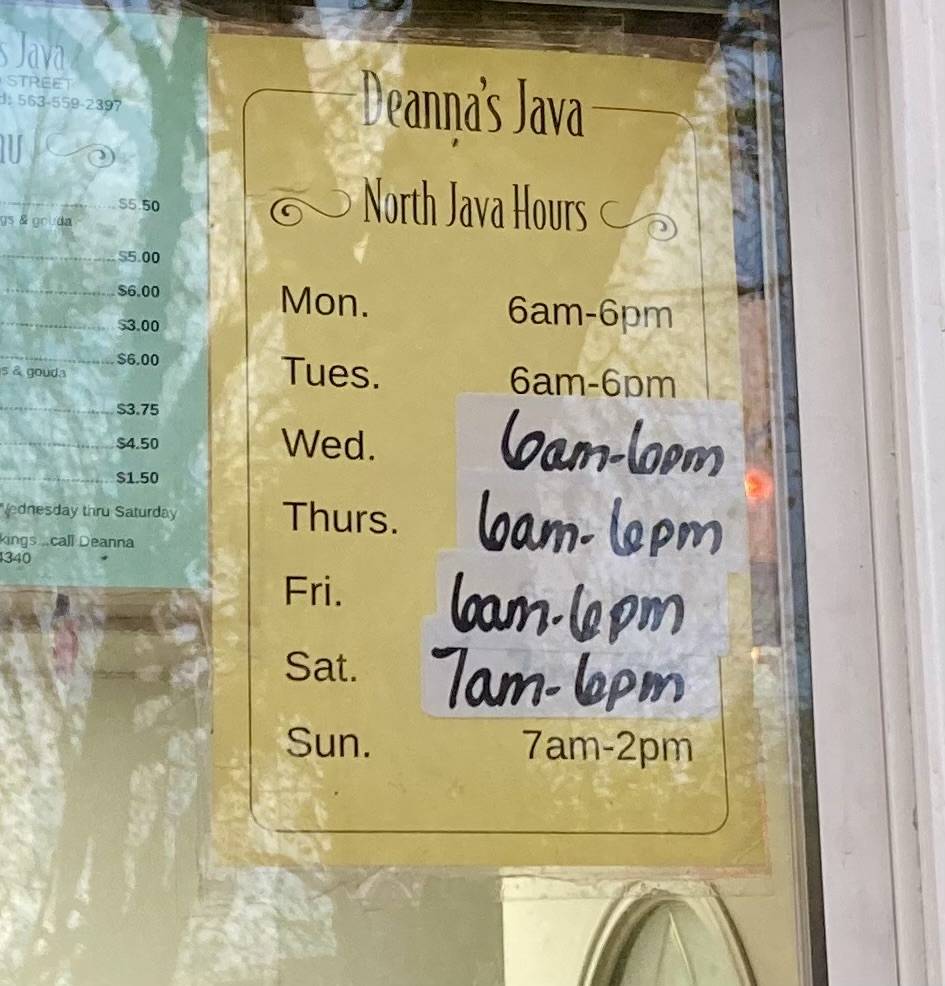 s Java
STREET
563-559-2397
$5.50
gs & gouda
$5.00
$6.00
$3.00
$6.00
s & gouda
$3.75
$4.50
$1.50
Wednesday thru Saturday
kings...call Deanna
4340
Deanna's Java
North Java Hours
Mon. 6am-6pm
Tues. 6am-6pm
Wed. 6am-6pm
Thurs. 6am-6pm
Fri. 6am-6pm
Sat. 7am-6pm
Sun. 7am-2pm